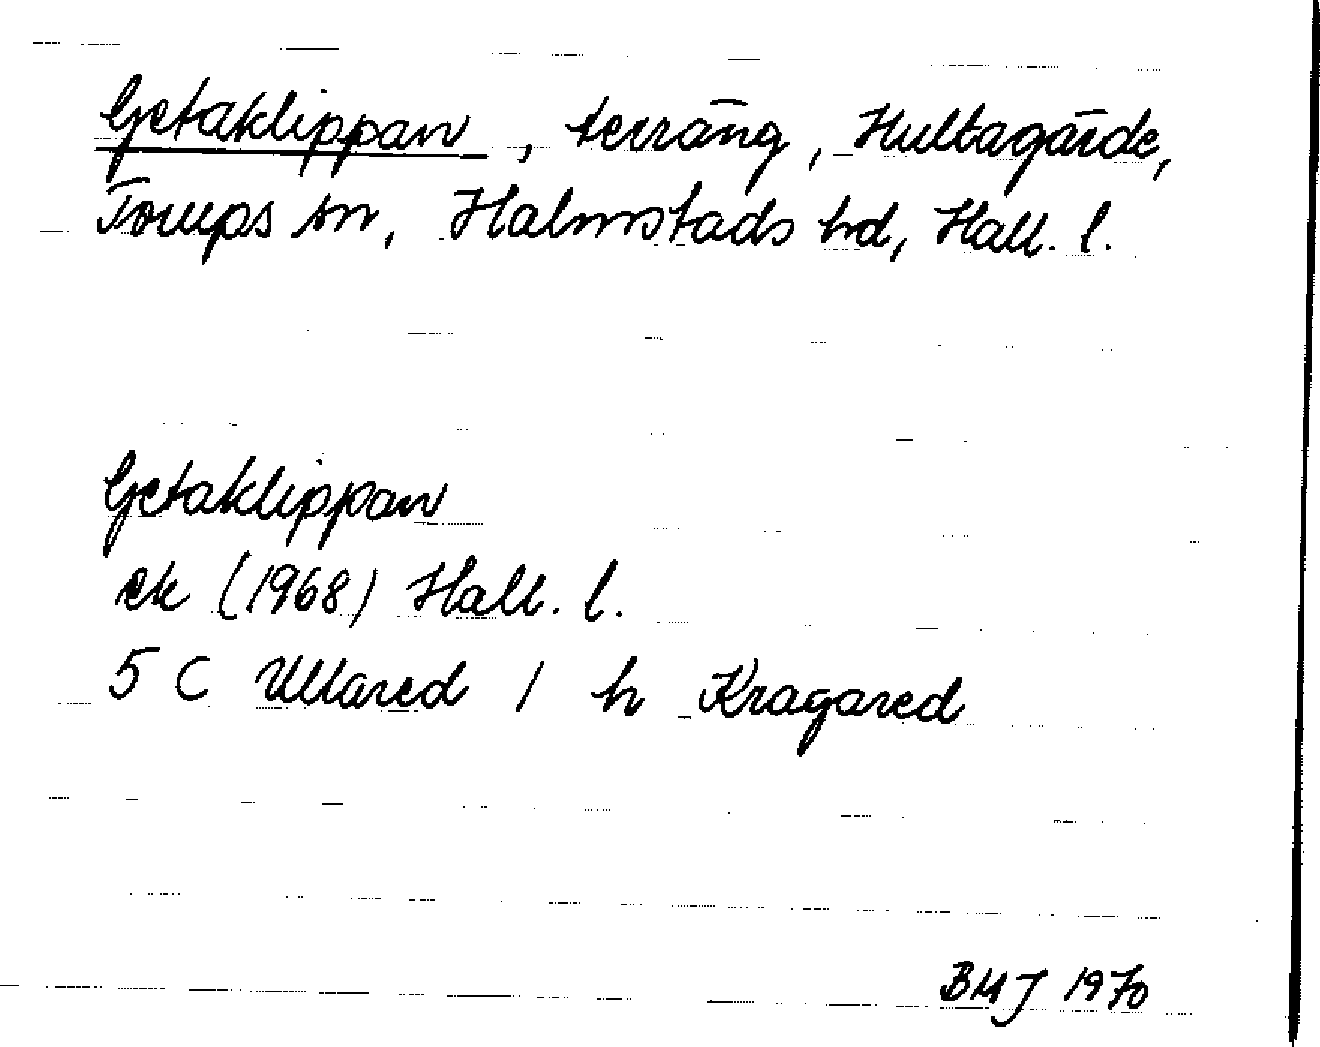 Getaklippan, terräng, Hultagärde,
Torups sn, Halmstads hd, Hall. l.
Getaklippan
ek (1968) Hall. l.
5 C Ullared / h Kragared
BMJ 1970